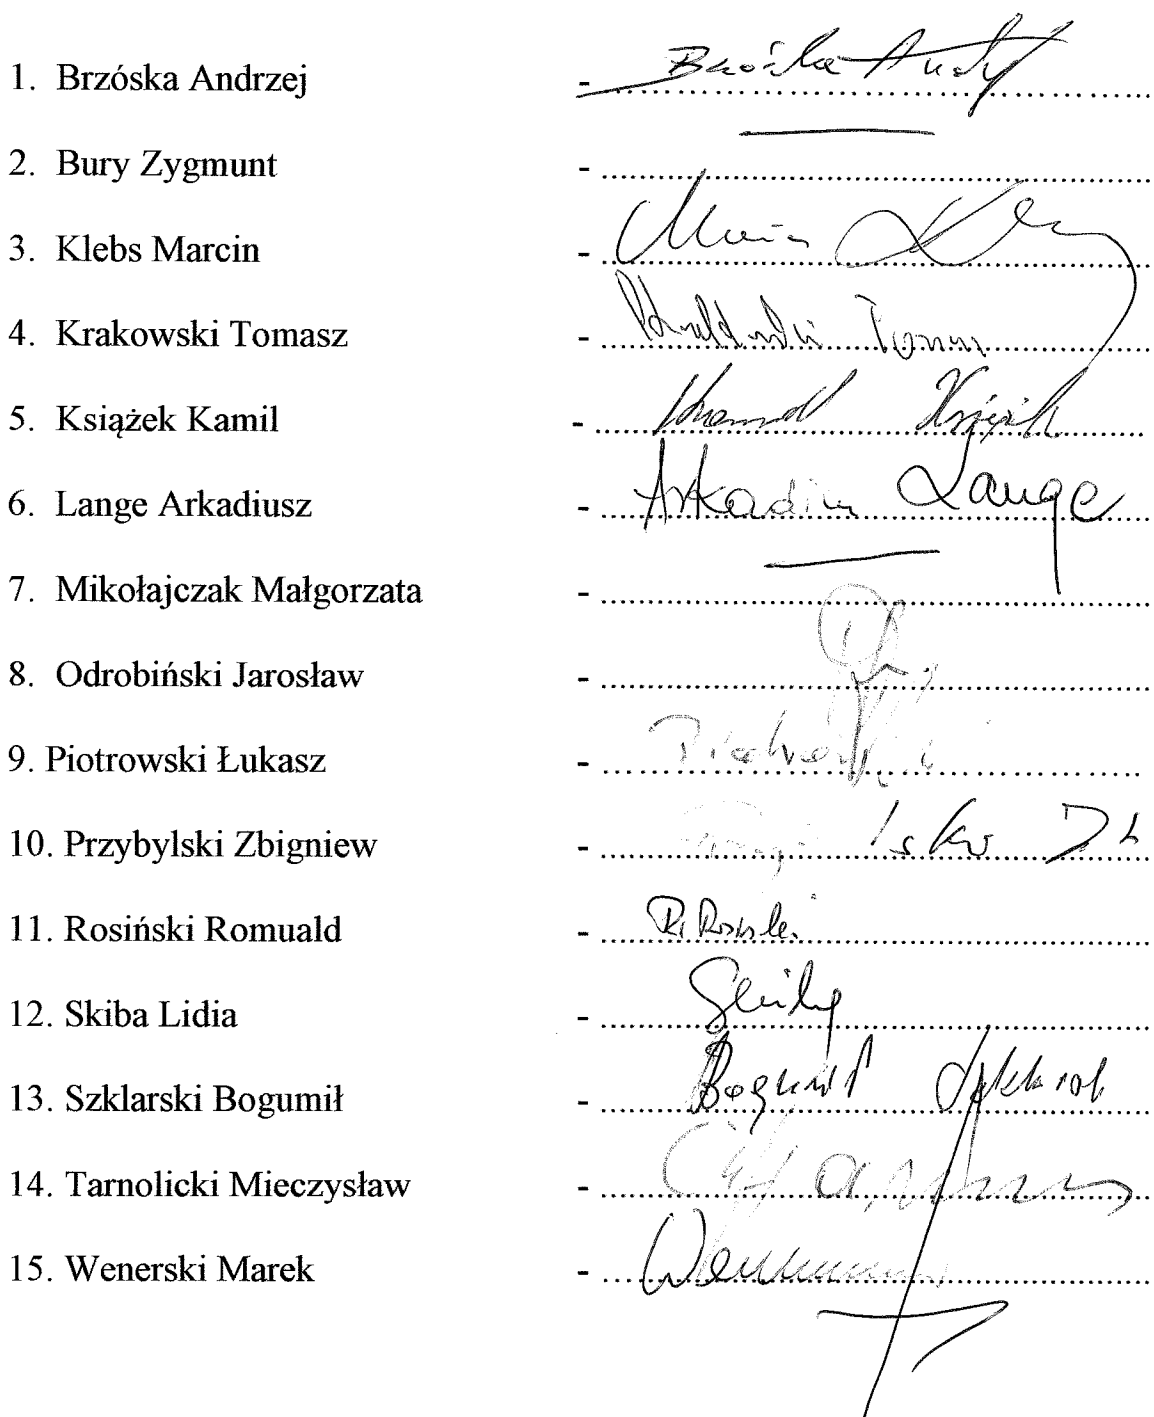 1. Brzóska Andrzej - Brzóska Andrzej
2. Bury Zygmunt -
3. Klebs Marcin - Marcin
4. Krakowski Tomasz - Krakowski Tomasz
5. Książek Kamil - Kamil Książek
6. Lange Arkadiusz - Arkadiusz Lange
7. Mikołajczak Małgorzata -
8. Odrobiński Jarosław -
9. Piotrowski Łukasz - Piotrowski
10. Przybylski Zbigniew -
11. Rosiński Romuald - R. Rosiński
12. Skiba Lidia -
13. Szklarski Bogumił - Bogumił Szklarski
14. Tarnolicki Mieczysław -
15. Wenerski Marek -